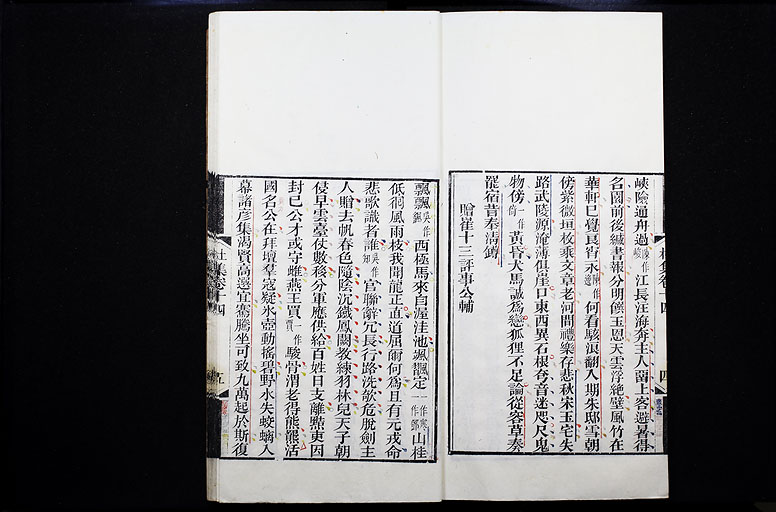 峽險通舟過江長注海奔主人留上客避暑得
名園前後緘書報分明饌玉恩天雲浮絶壁風竹在
華軒已覺良宵永何看駭浪翻入期朱邸雪朝
傍紫微垣枚乘文章老河間禮樂存悲秋宋玉宅失
路武陵源淹薄俱崖口東西異石根夷音迷咫尺鬼
物傍一作倚黃昏犬馬誠為戀狐狸不足論從容草奏
罷宿昔奉清罇
贈崔十三評事公輔
飄飄西極馬來自渥洼池颯飁定山桂
低徊風雨枝我聞龍正直道屈爾何為且有元戎命
悲歌識者誰官聯辭冗長行路洗欹危脫劍主
人贈去帆春色隨陰沉鐵鳳闕教練羽林兒天子朝
侵早雲臺仗數移分軍應供給百姓日支離黠吏因
封己公才或守雌燕王買一作賈駿骨渭老得熊羆活
國名公在拜壇羣寇疑冰壺動搖碧野水失蛟螭入
幕諸彥集渴賢高選宜騫騰坐可致九萬起於斯復
杜集卷十四
五
四